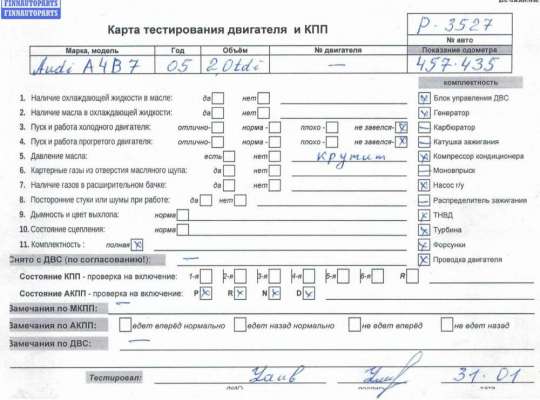 FINNAUTOPARTS
FINNAUTOPARTS
Карта тестирования двигателя и КПП
Р-3527
№ авто
Марка, модель Год Объём № двигателя Показание одометра
Audi A4B7 05 2,0tdi — 457435
комплектность
1. Наличие охлаждающей жидкости в масле: да нет
Блок управления ДВС
2. Наличие масла в охлаждающей жидкости: да нет
Генератор
3. Пуск и работа холодного двигателя: отлично- норма - плохо - не завелся-
Карбюратор
4. Пуск и работа прогретого двигателя: отлично- норма - плохо - не завелся-
Катушка зажигания
5. Давление масла: есть нет крутит
Компрессор кондиционера
6. Картерные газы из отверстия масляного щупа: да нет
Моновпрыск
7. Наличие газов в расширительном бачке: да нет
Насос г/у
8. Посторонние стуки или шумы при работе: да нет
Распределитель зажигания
9. Дымность и цвет выхлопа: норма
ТНВД
10. Состояние сцепления: норма
Турбина
11. Комплектность : полная
Форсунки
Снято с ДВС (по согласованию!): —
Проводка двигателя
Состояние КПП - проверка на включение: 1-я 2-я 3-я 4-я 5-я 6-я R
Состояние АКПП - проверка на включение: P R N D
Замечания по МКПП: —
Замечания по АКПП: едет вперёд нормально едет назад нормально не едет вперёд не едет назад
Замечания по ДВС: —
Тестировал: 31.01